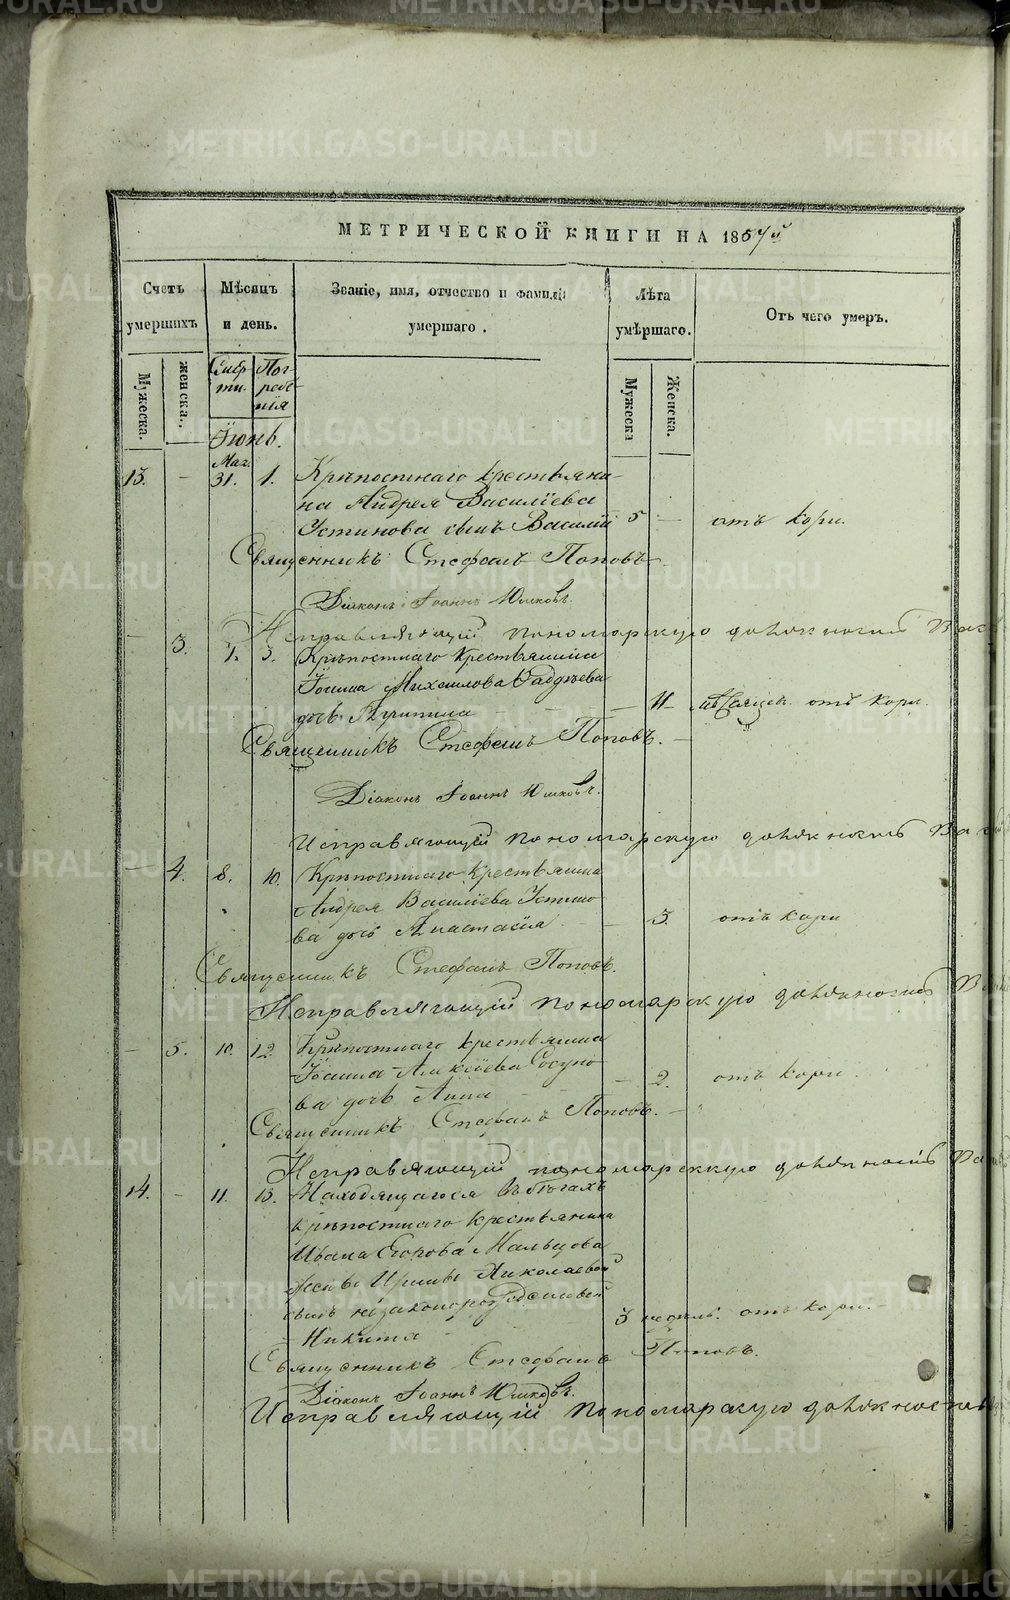 METRIKI.GASO-URAL.RU
МЕТРИЧЕСКОЙ КНИГИ НА 1857й
Счетъ умершихъ
Мѣсяцъ и день.
Званіе, имя, отчество и фамилія умершаго.
Лѣта умѣршаго.
Отъ чего умеръ.
Мужеска.
женска.
Смерти.
Погребенія
Мужеска
Женска.
Іюнь.
13. - Мая 31. 1. Крѣпостнаго крестьяни-
на Андрея Василіева
Устинова сынъ Василій 5 - отъ кори.
Священникъ Стефанъ Поповъ
Діаконъ Іоаннъ Юшковъ.
Исправляющій пономарскую должность
- 3. 1. 3. Крѣпостнаго крестьянина
Іоанна Михаилова
дочь - 11 мѣсяцев. отъ кори.
Священникъ Стефанъ Поповъ.
Діаконъ Іоаннъ Юшковъ.
Исправляющій пономарскую должность
- 4. 8. 10. Крѣпостнаго крестьянина
Андрея Василіева Устино
ва дочь Анастасія - 3. отъ кори
Священникъ Стефанъ Поповъ.
Исправляющій пономарскую должность
- 5. 10. 12. Крѣпостнаго крестьянина
Іоанна
ва дочь Анна - 2. отъ кори.
Священникъ Стефанъ Поповъ.
Исправляющій пономарскую должность
14. - 11. 13. Находящагося въ бѣгахъ
крѣпостнаго крестьянина
Ивана Егорова Мальцова
жены Ирины Николаевой
сынъ незаконорожденный
Никита 3 недѣль. отъ кори.
Священникъ Стефанъ Поповъ.
Діаконъ Іоаннъ Юшковъ.
Исправляющій пономарскую должность